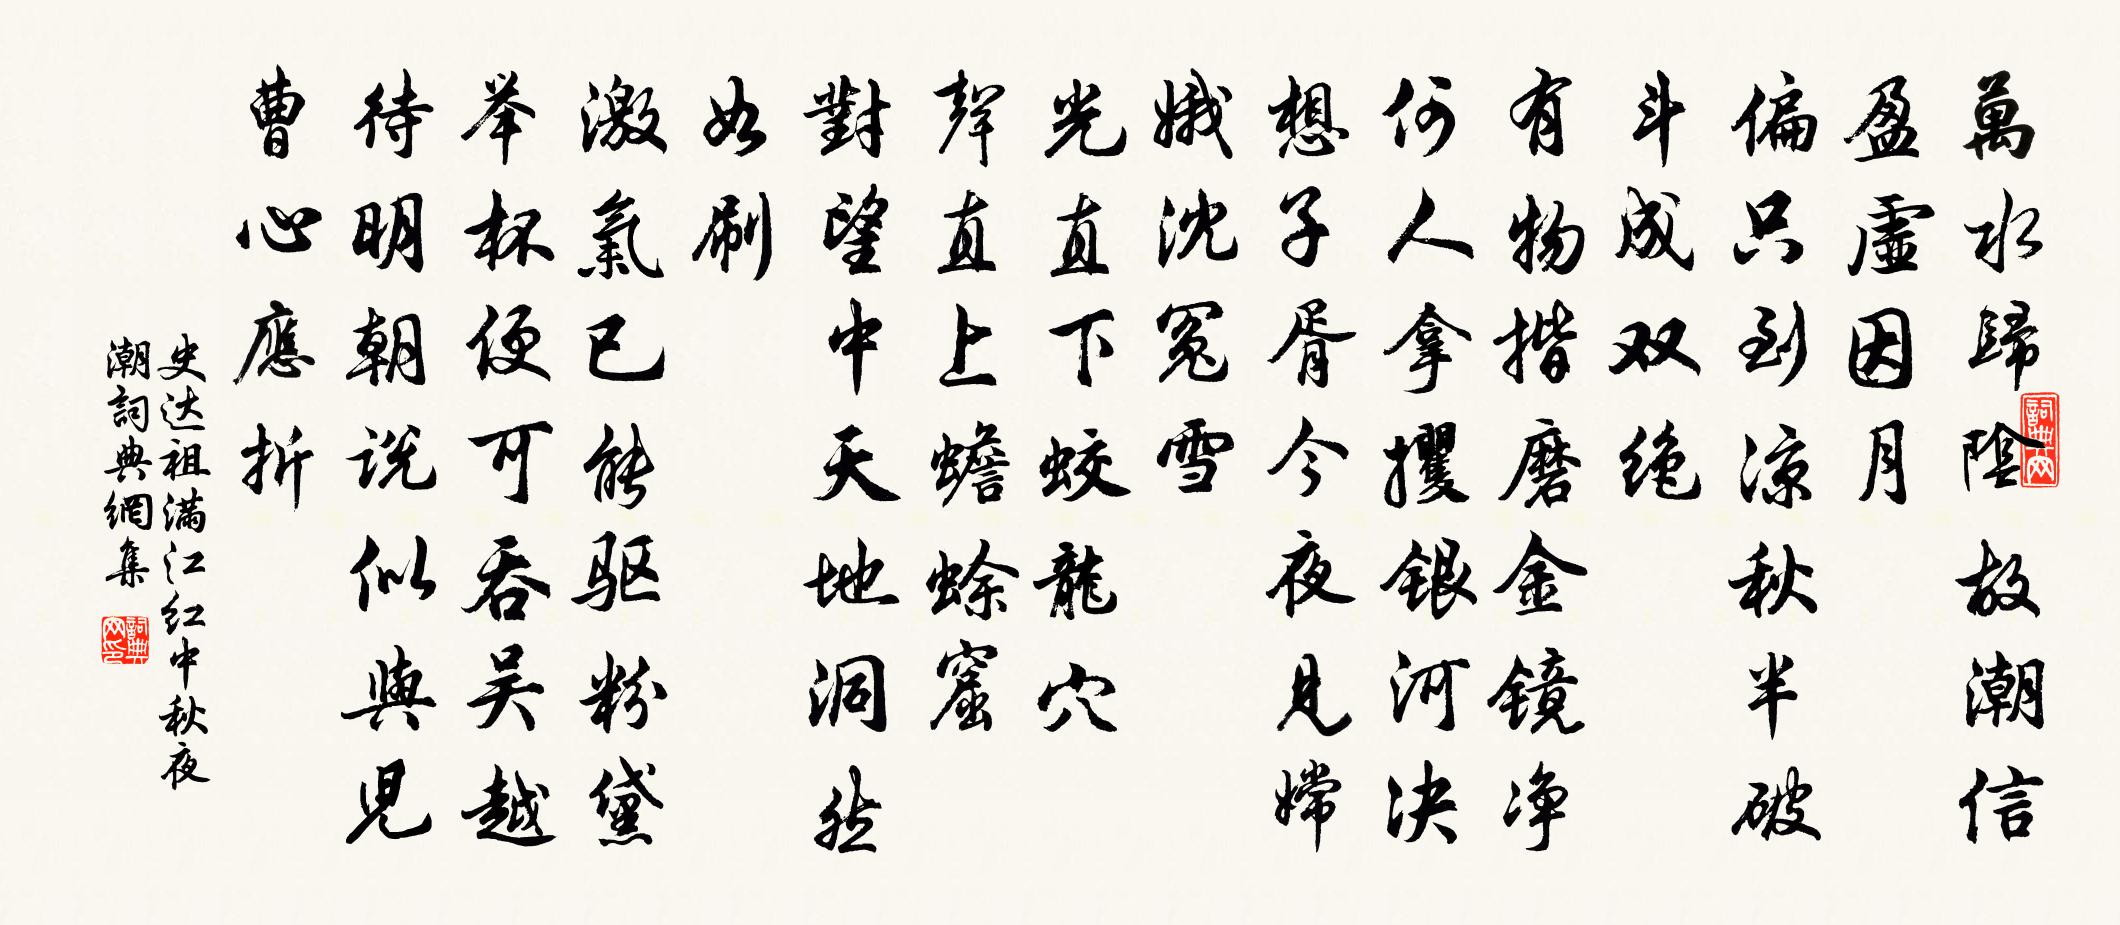 萬水歸陰故潮信
盈虛因月
偏只到涼秋半破
斗成双绝
有物揩磨金镜净
何人拿攫银河决
想子胥今夜見嫦
娥沈冤雪
光直下蛟龍穴
聲直上蟾蜍窟
對望中天地洞然
如刷
激氣已能驱粉黛
举杯便可吞吴越
待明朝说似與児
曹心應折
史达祖满江红中秋夜
潮詞典網集
詞典网
詞典网印